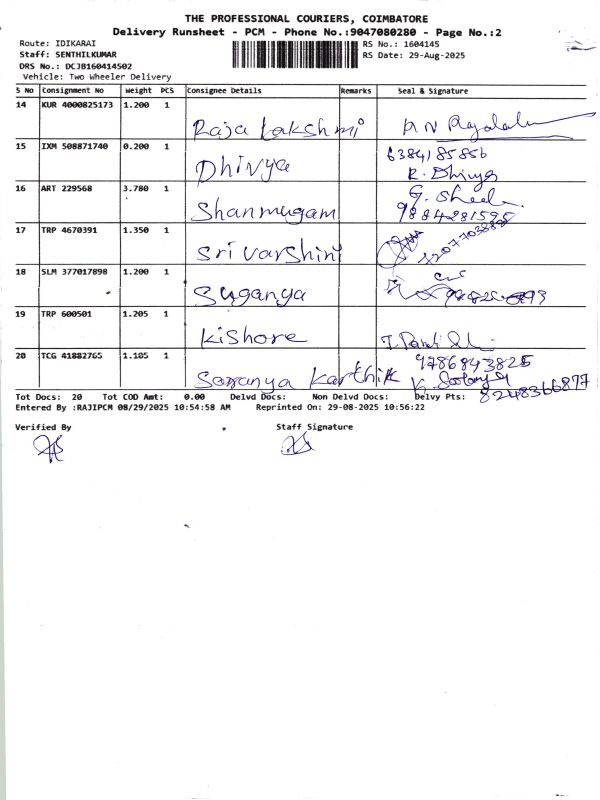 THE PROFESSIONAL COURIERS, COIMBATORE
Delivery Runsheet - PCM - Phone No.:9047080280 - Page No.:2
Route: IDIKARAI
RS No.: 1604145
Staff: SENTHILKUMAR
RS Date: 29-Aug-2025
DRS No.: DCJB160414502
Vehicle: Two Wheeler Delivery
S No Consignment No Weight PCS Consignee Details Remarks Seal & Signature
14 KUR 4000825173 1.200 1
Raja Lakshmi
15 IXM 508871740 0.200 1 6384185856
Dhivya R. Dhivya
16 ART 229568 3.780 1
Shanmugam
17 TRP 4670391 1.350 1
Sri varshini
18 SLM 377017898 1.200 1
Suganya
19 TRP 600501 1.205 1
Kishore
20 TCG 41882765 1.105 1 9786843825
Saranya Karthik
8248366877
Tot Docs: 20 Tot COD Amt: 0.00 Delvd Docs: Non Delvd Docs: Delvy Pts:
Entered By :RAJIPCM 08/29/2025 10:54:58 AM Reprinted On: 29-08-2025 10:56:22
Verified By Staff Signature